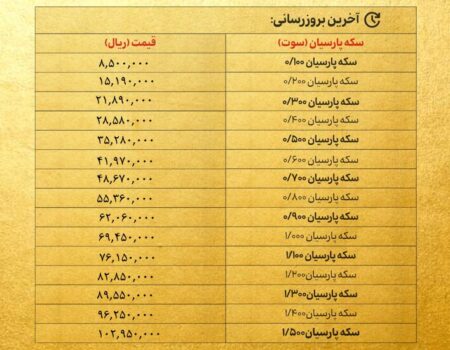 آخرین بروزرسانی:
سکه پارسیان (سوت) قیمت (ریال)
سکه پارسیان ۰/۱۰۰ ۸,۵۰۰,۰۰۰
سکه پارسیان ۰/۲۰۰ ۱۵,۱۹۰,۰۰۰
سکه پارسیان ۰/۳۰۰ ۲۱,۸۹۰,۰۰۰
سکه پارسیان ۰/۴۰۰ ۲۸,۵۸۰,۰۰۰
سکه پارسیان ۰/۵۰۰ ۳۵,۲۸۰,۰۰۰
سکه پارسیان ۰/۶۰۰ ۴۱,۹۷۰,۰۰۰
سکه پارسیان ۰/۷۰۰ ۴۸,۶۷۰,۰۰۰
سکه پارسیان ۰/۸۰۰ ۵۵,۳۶۰,۰۰۰
سکه پارسیان ۰/۹۰۰ ۶۲,۰۶۰,۰۰۰
سکه پارسیان ۱/۰۰۰ ۶۹,۴۵۰,۰۰۰
سکه پارسیان ۱/۱۰۰ ۷۶,۱۵۰,۰۰۰
سکه پارسیان۱/۲۰۰ ۸۲,۸۵۰,۰۰۰
سکه پارسیان۱/۳۰۰ ۸۹,۵۵۰,۰۰۰
سکه پارسیان۱/۴۰۰ ۹۶,۲۵۰,۰۰۰
سکه پارسیان۱/۵۰۰ ۱۰۲,۹۵۰,۰۰۰